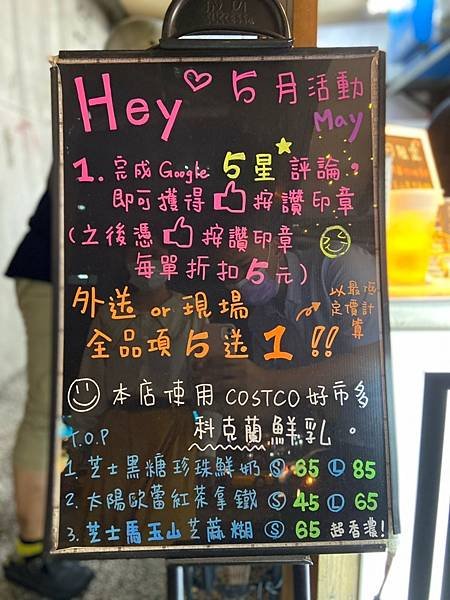 Hey 5月活動
May
1. 完成Google 5星評論，
即可獲得 按讚印章
(之後憑 按讚印章
每單折扣5元)
外送 or 現場
全品項 5 送 1 !!
以最低
定價計
算
本店使用 COSTCO 好市多
科克蘭鮮乳。
T.O.P
1. 芝士黑糖珍珠鮮奶 Ⓢ 65 Ⓛ 85
2. 太陽歐蕾紅茶拿鐵 Ⓢ 45 Ⓛ 65
3. 芝士馬玉山芝蔴糊 Ⓢ 65 超香濃!